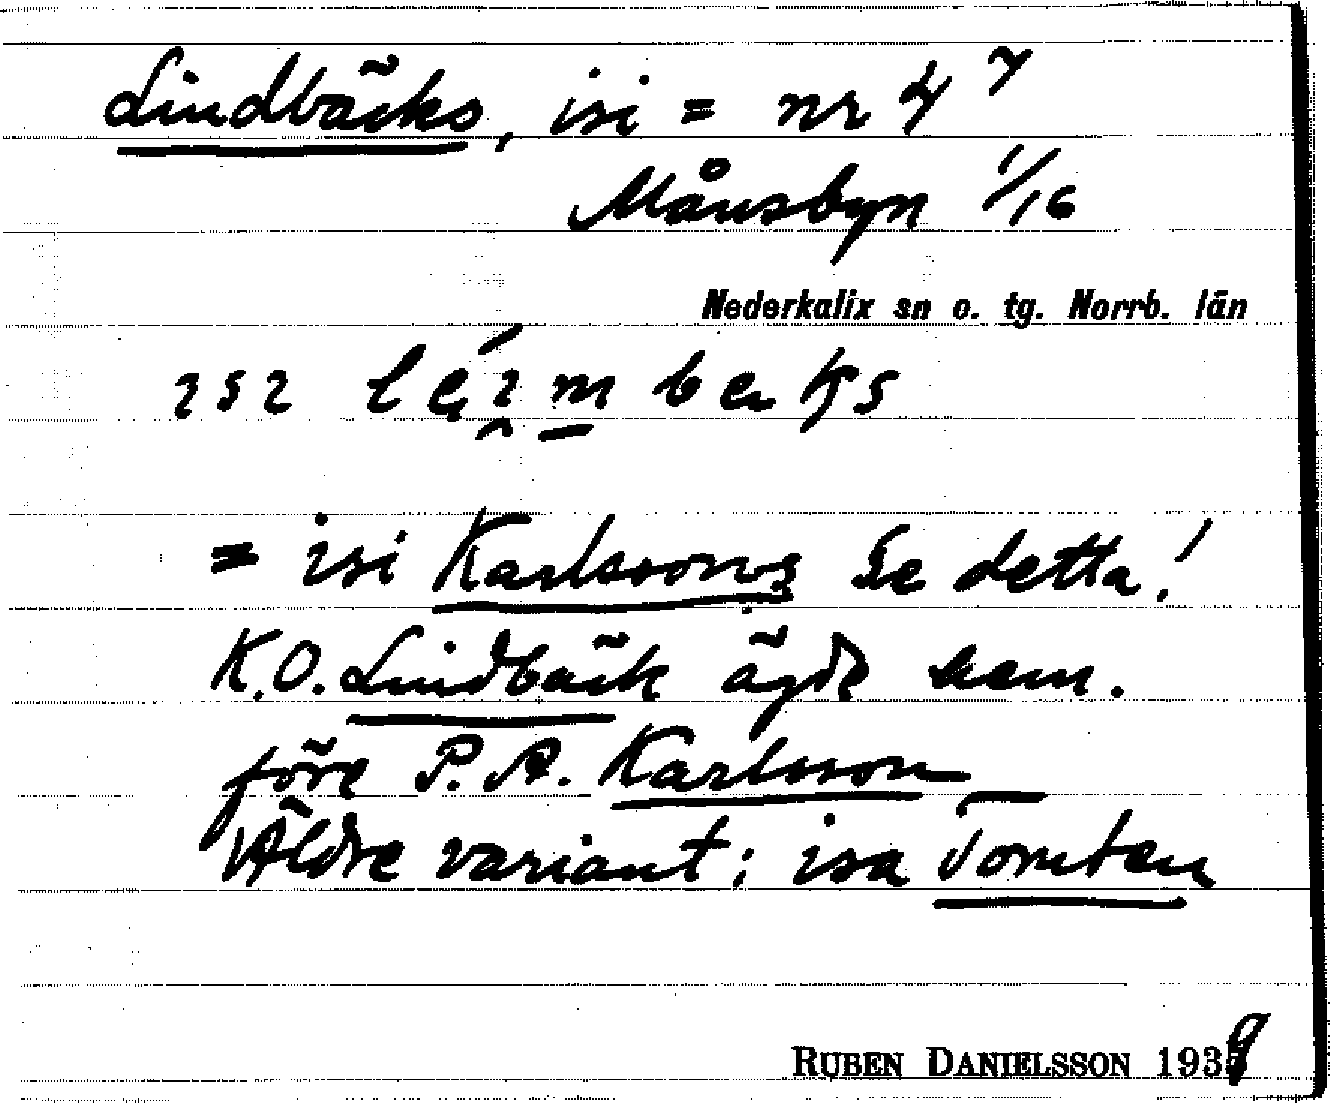 Lindbäcks, isi = nr 4⁷
Månsbyn 1/16
Nederkalix sn o. tg. Norrb. län
= isi Karlssons Se detta!
K.O. Lindbäck ägde hem.
före P. A. Karlsson
Äldre variant: isa Tomten
RUBEN DANIELSSON 1938